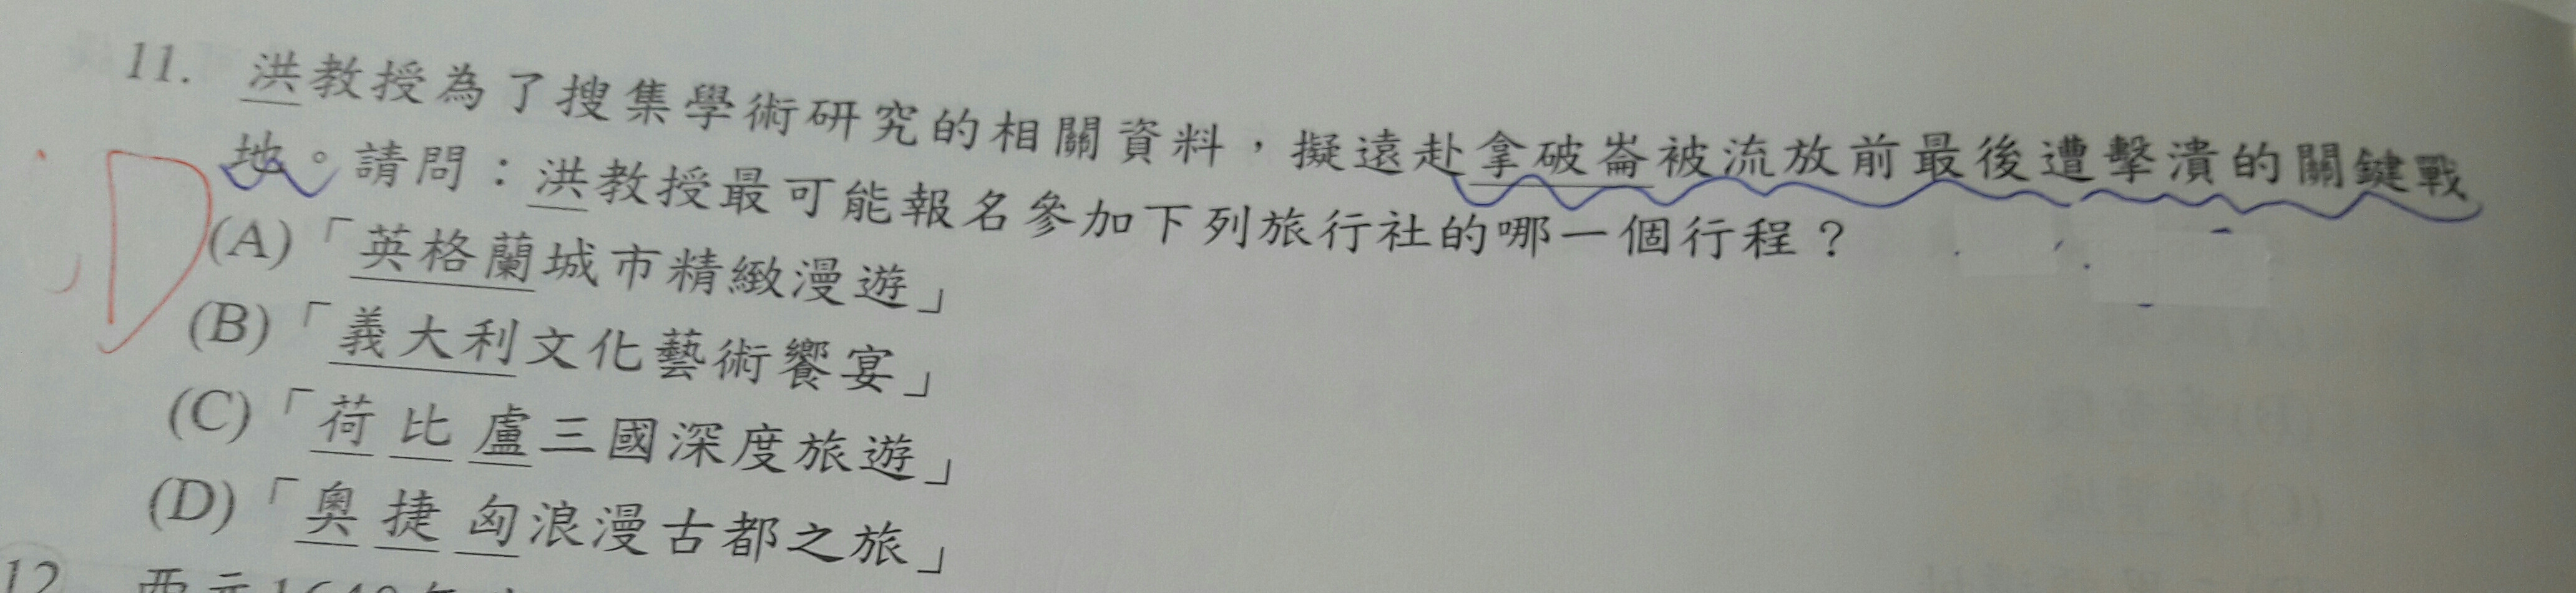 11. 洪教授為了搜集學術研究的相關資料，擬遠赴拿破崙被流放前最後遭擊潰的關鍵戰
地。請問：洪教授最可能報名參加下列旅行社的哪一個行程？
D
(A)「英格蘭城市精緻漫遊」
(B)「義大利文化藝術饗宴」
(C)「荷比盧三國深度旅遊」
(D)「奧捷匈浪漫古都之旅」
12 西元1640年